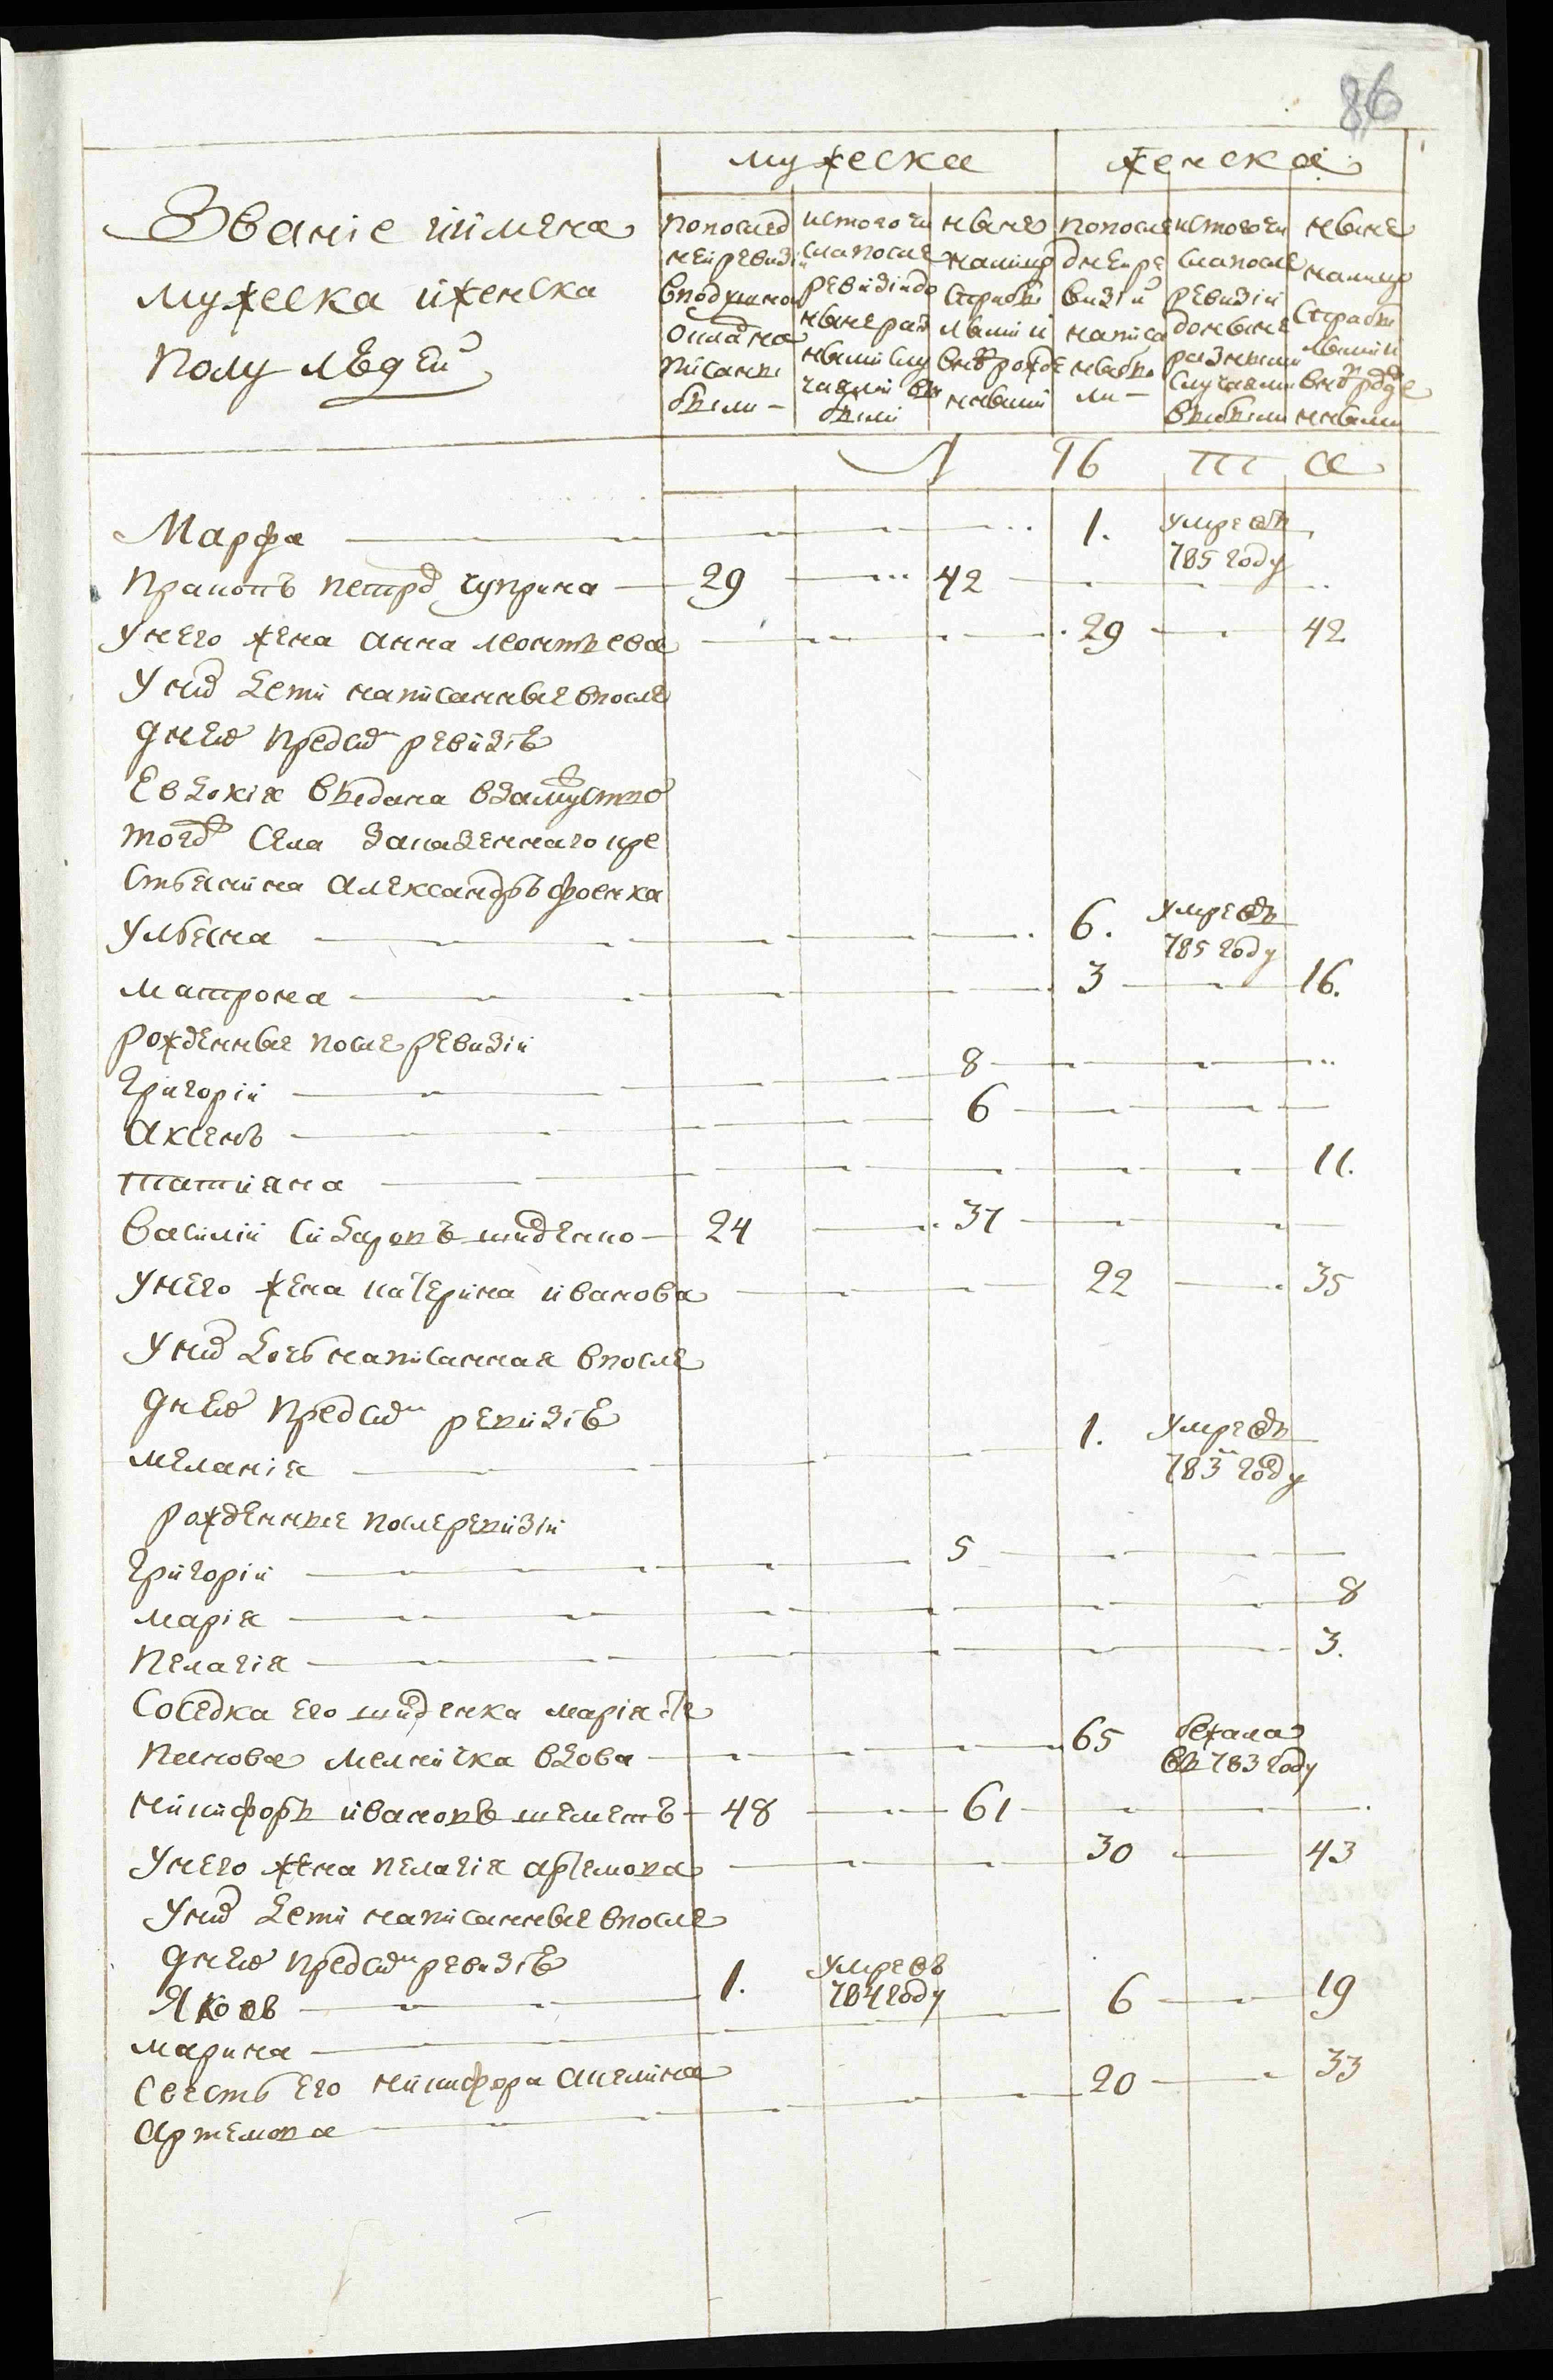 86
мужеска женска
Званіе иімена
мужеска иженска
полу людей
попослед
ней ревизіи
вподушной
окладна
писаны
были -
истого чи
сла после
ревизіи до
ныне раз
ными слу
чаями вы
были
ныне
налицо
Старыѣ
лыми и
внѣ рожде
нными
попосле
дней ре
визіи
написа
ны бы
ли -
истого чи
сла после
ревизіи
до ныне
разными
случаями
выбыли
ныне
налицо
Старыѣ
лыми и
внѣ рожде
нными
Л Ѣ Т А
Марфа 1. умре въ
785 году
Прокопъ петров чуприна 29 42
унего жена анна леонтьева 29 42
у них дети написанные впосле
днею пред сим ревизіѣ
Евдокія выдана взамуство
того ж Села Заказенного кре
стьянина александръ фоенка
ульяна 6. умре въ
785 году
матрона 3 16.
рожденные после ревизіи
григорій 8
аксенъ 6
татияна 11.
василій сидоровъ шиденко 24 37
унего жена катерина иванова 22 35
у них дочь написанная впосле
днею пред сим ревизіѣ
меланія 1. умре въ
783м году
рожденные после ревизіи
григорій 5
марія 8
пелагія 3.
Соседка его шиденка марія сте
панова мелничка вдова 65 бежала
въ 783 году
никифоръ ивановъ шеметъ 48 61
унего жена пелагія артемова 30 43
у них дети написанные впосле
днею пред сим ревизіѣ
Яковъ 1. умре въ
784 году
марина 6 19
свесть его никифора акелина
артемова 20 33